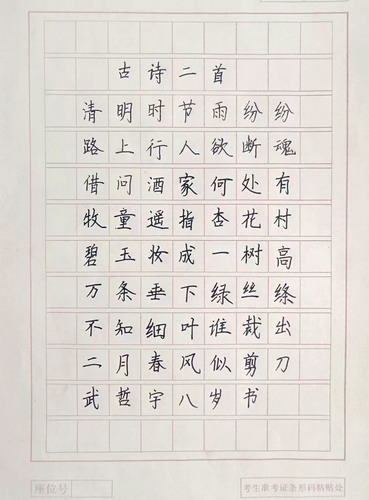 古诗二首
清明时节雨纷纷
路上行人欲断魂
借问酒家何处有
牧童遥指杏花村
碧玉妆成一树高
万条垂下绿丝绦
不知细叶谁裁出
二月春风似剪刀
武哲宇八岁书
座位号
考生准考证条形码粘贴处